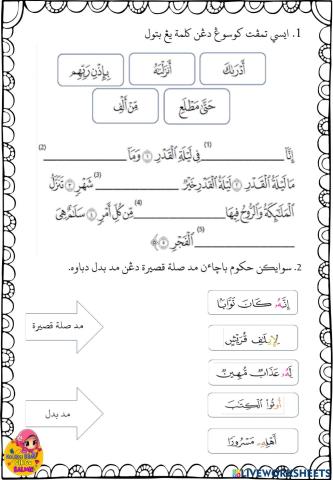 1. ايسي تمڤت كوسوڠ دڠن كلمة يڠ بتول
أَدْرَىٰكَ
أَنزَلْنَٰهُ
بِإِذْنِ رَبِّهِم
حَتَّىٰ مَطْلَعِ
مِّنْ أَلْفِ
إِنَّآ (1) فِى لَيْلَةِ ٱلْقَدْرِ ۝١ وَمَآ (2)
مَا لَيْلَةُ ٱلْقَدْرِ ۝٢ لَيْلَةُ ٱلْقَدْرِ خَيْرٌ (3) شَهْرٍ ۝٣ تَنَزَّلُ
ٱلْمَلَٰٓئِكَةُ وَٱلرُّوحُ فِيهَا (4) مِّن كُلِّ أَمْرٍ ۝٤ سَلَٰمٌ هِىَ
(5) ٱلْفَجْرِ ۝٥
2. سوايكن حكوم باچاءن مد صلة قصيرة دڠن مد بدل دباوه.
إِنَّهُۥ كَانَ تَوَّابًۢا
مد صلة قصيرة
لِإِيلَٰفِ قُرَيْشٍ
لَهُۥ عَذَابٌ مُّهِينٌ
أُوتُوا۟ ٱلْكِتَٰبَ
مد بدل
أَهْلِهِۦ مَسْرُورًا
LIVEWORKSHEETS